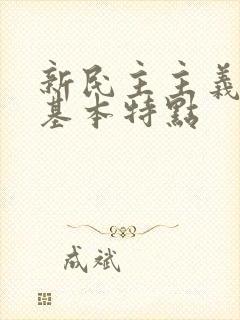 新民主主義
基本特點
成斌